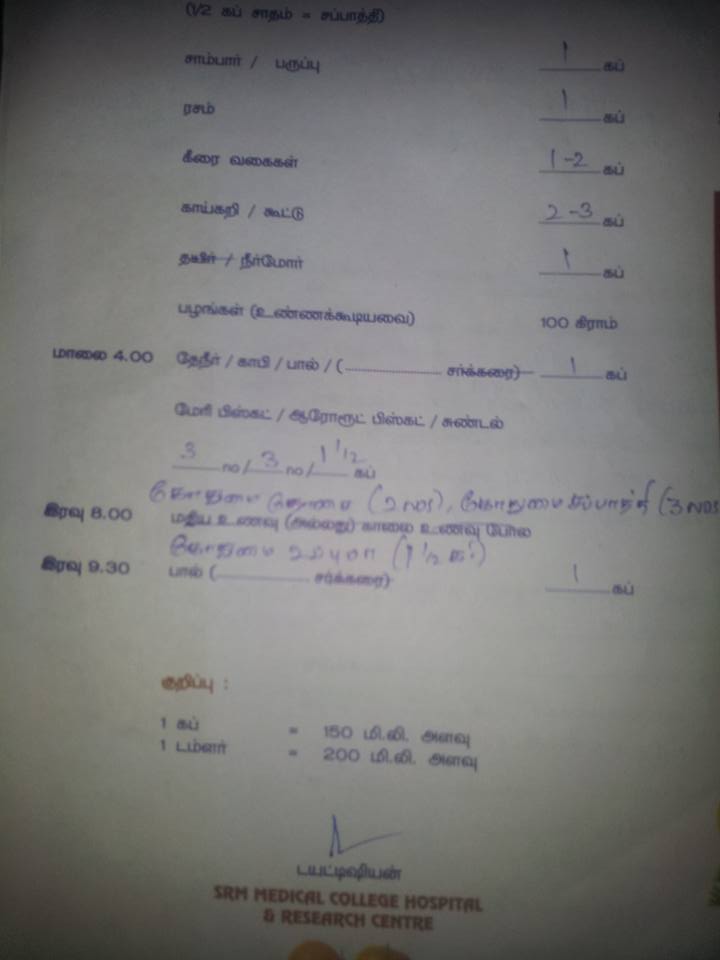 (1/2 கப் சாதம் = சப்பாத்தி)
சாம்பார் / பருப்பு 1 கப்
ரசம் 1 கப்
கீரை வகைகள் 1-2 கப்
காய்கறி / கூட்டு 2-3 கப்
தயிர் / நீர்மோர் 1 கப்
பழங்கள் (உண்ணக்கூடியவை) 100 கிராம்
மாலை 4.00 தேநீர் / காபி / பால் / (.......................... சர்க்கரை) 1 கப்
மேரி பிஸ்கட் / ஆரோரூட் பிஸ்கட் / சுண்டல்
3 no / 3 no / 1 1/2 கப்
கோதுமை தோசை (2 nos), கோதுமை சப்பாத்தி (3 nos
இரவு 8.00 மதிய உணவு (அல்லது) காலை உணவு போல
கோதுமை உப்புமா (1 1/2 க)
இரவு 9.30 பால் (.......................... சர்க்கரை) 1 கப்
குறிப்பு :
1 கப் = 150 மி.லி. அளவு
1 டம்ளர் = 200 மி.லி. அளவு
டயட்டிஷியன்
SRM MEDICAL COLLEGE HOSPITAL
& RESEARCH CENTRE